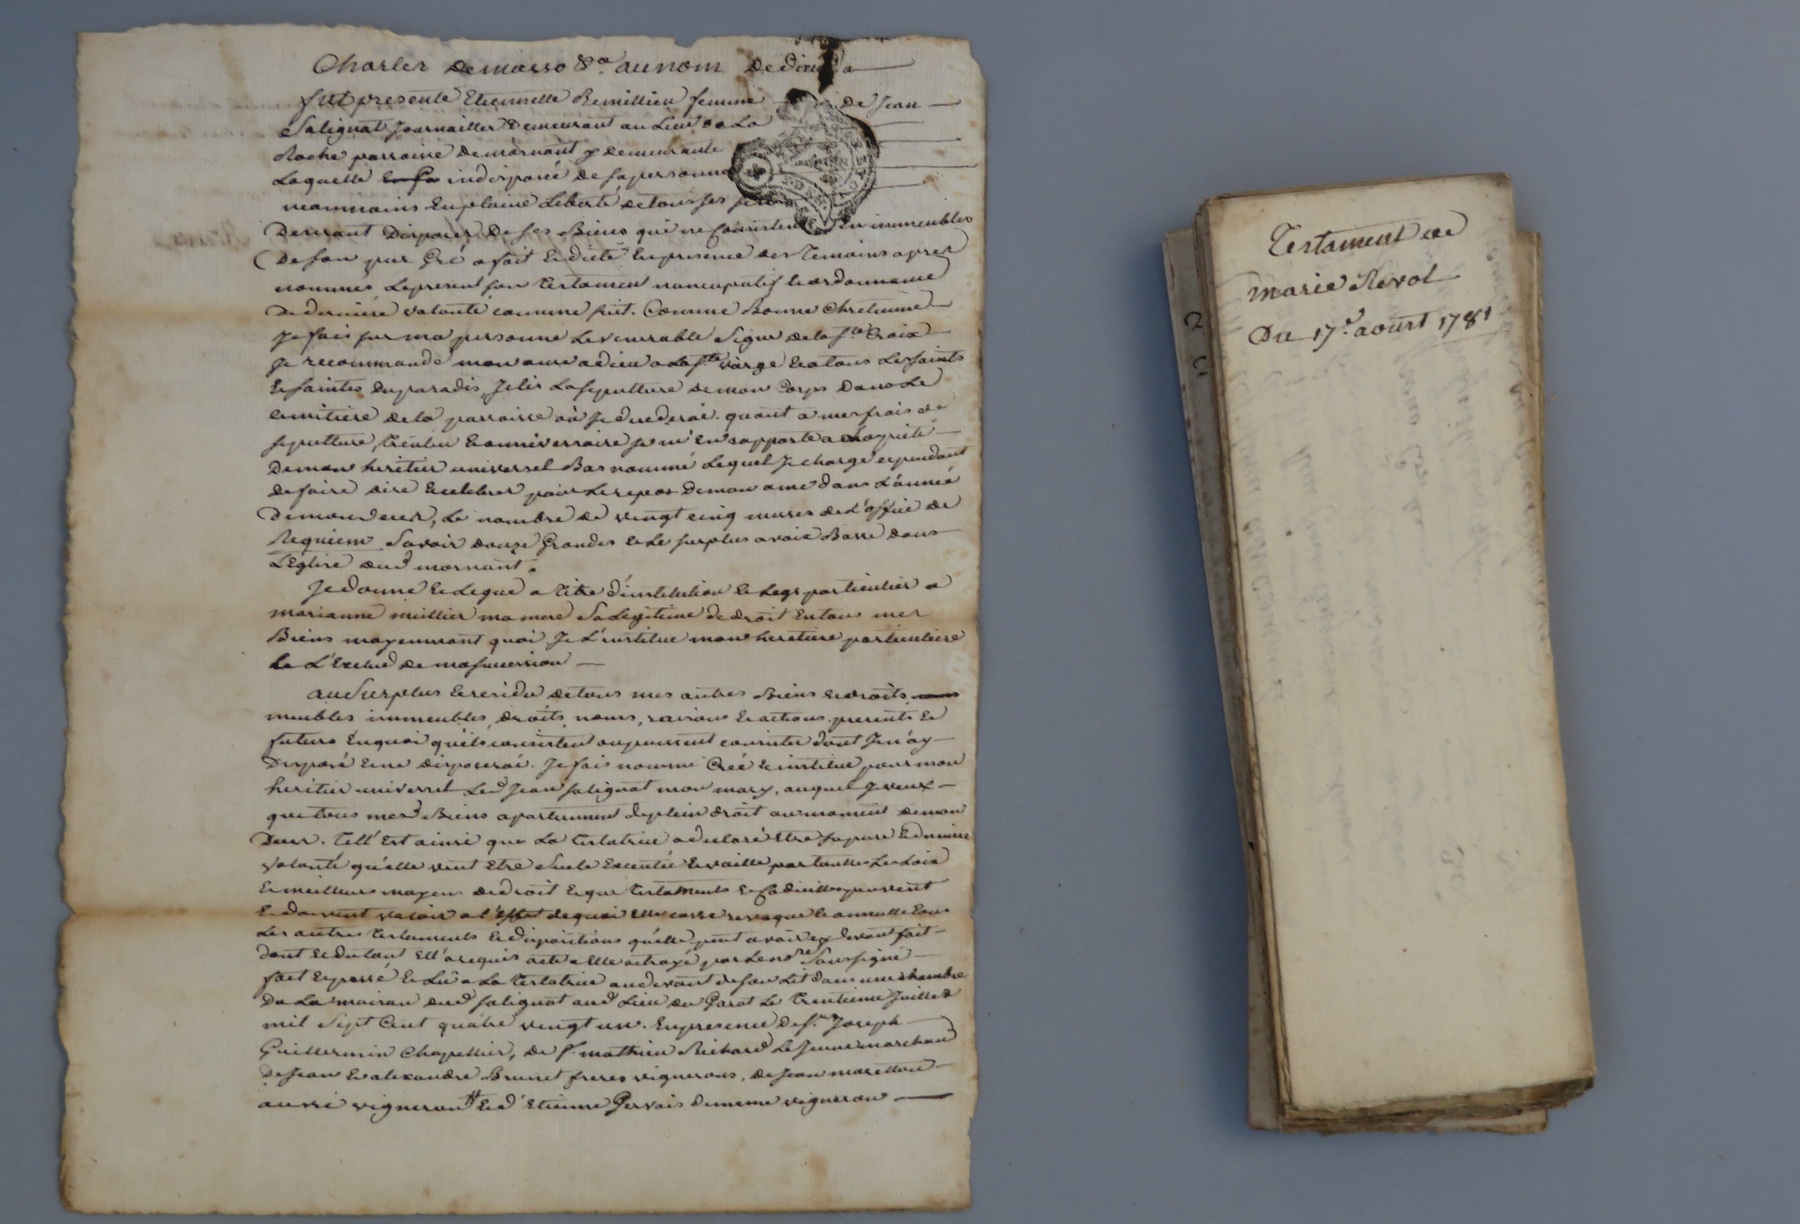 Charles Demasso &a. au nom De dieu
fut presente Etiennette Remillieu femme de Jean
Salignat Journaillier Demeurant au Lieu de La
Roche parroisse de mornant y demeurante
Laquelle indisposée de sa personne
neanmoins En plaine Liberté de tous ses
Desirant Disposer De ses Biens qui ne Consistent En immeubles
De son pur Gré a fait Et dicté En presence des Temoins apres
nommés Le present son Testament nuncupatif Et ordonnance
De derniere volonté comme suit. Comme Bonne Chretienne
Je fais sur ma personne Le venerable Signe de la Ste Croix
Je recommande mon ame a dieu a La ste vierge Et a tous Les saints
Et saintes du paradis, J'elis La sepulture de mon Corps Dans Le
cimitiere de la parroisse où Je decederai. quant a mes frais de
sepulture, Et anniversaire Je m'En rapporte a La pieté
De mon heritier universel Bas nommé Lequel Je charge cependant
de faire dire Et celebrer pour Le repos De mon ame dans L'année
De mon deces, Le nombre de vingt cinq messes de L'office de
Requiem Savoir douze Grandes Et Le surplus a voix Basse dans
L'Eglise dud mornant.
Je donne Et Legue a titre d'institution Et Legs particulier a
marianne meillier ma mere Sa Legitime de droit En tous mes
Biens moyennant quoi Je L'institue mon heretiere particuliere
Et L'Exclud de ma succession
au Surplus Et residu de tous mes autres Biens Et droits
meubles immeubles, droits, noms, raisons Et actions presents Et
futurs En quoi qu'ils consistent ou puissent consister dont Je n'ay
Disposé Et ne disposerai. Je fais nomme Créé Et institue pour mon
heritier universel Led Jean salignat mon mary, auquel Je veux
que tous mesd Biens apartiennent de plein droit au moment de mon
Deces. Tell' Est ainsi que La Testatrice a declaré Etre sa pure Et derniere
volonté qu'elle veut Etre Suivie Executée Et vaille par toutes Les Loix
Et meilleurs moyens de droit Et que Testaments Et Codicilles peuvent
Et doivent valoir a l'effet de quoi Elle casse revoque Et annulle tous
Les autres Testaments Et dispositions qu'elle peut avoir cy devant fait
dont Et du tout Ell' a requis acte a Elle octroyé par Le nore Soussigné
fait Et passé Et Lu a La Testatrice au devant de son Lit dans une chambre
De La maison dud salignat aud Lieu du Garat Le Trentieme Juillet
mil Sept Cent quatre vingt un. En presence De sr. Joseph
Guillermin Chapellier, de sr. mathieu Richard Le Jeune marchand
De Jean Et alexandre Brunet freres vignerons, de Jean
aussi vigneron Et d'Etienne Gervais de meme vigneron
Testament de
marie Revol
Du 17e. aoust 1781